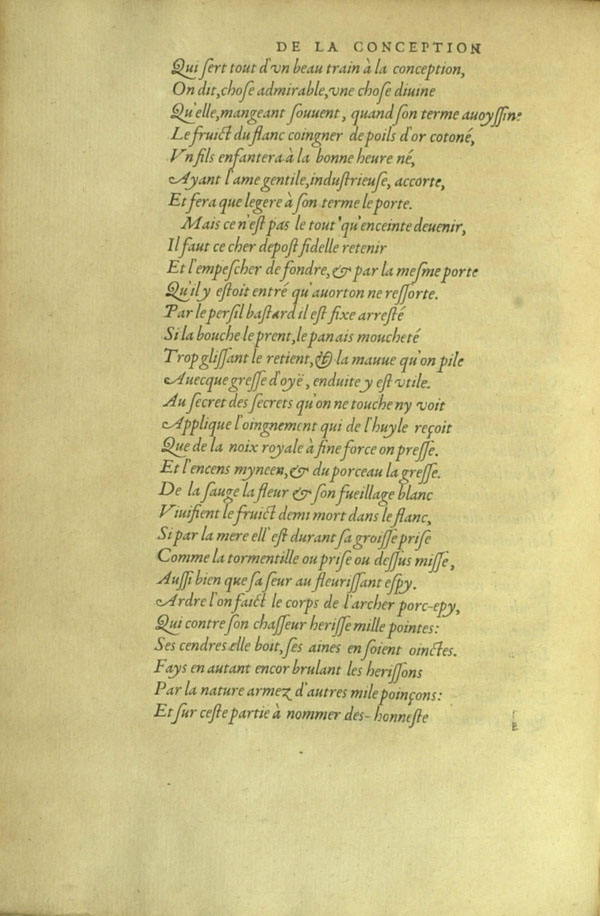 DE LA CONCEPTION
Qui ſert tout d'vn beau train à la conception,
On dit, choſe admirable, vne choſe diuine
Qu'elle, mangeant ſouuent, quand ſon terme auoyſſine
Le fruict du flanc coingner de poils d'or cotoné,
Vn fils enfantera à la bonne heure né,
Ayant l'ame gentile, induſtrieuſe, accorte,
Et ſera que legere à ſon terme le porte.
Mais ce n'eſt pas le tout 'qu'enceinte deuenir,
Il faut ce cher depoſt fidelle retenir
Et l'empeſcher de fondre, & par la meſme porte
Qu'il y eſtoit entré qu'auorton ne reſſorte.
Par le perſil baſtard il eſt fixe arreſté
Si la bouche le prent, le panais moucheté
Trop gliſſant le retient, & la mauue qu'on pile
Auecque greſſe d'oyë, enduite y eſt vtile.
Au ſecret des ſecrets qu'on ne touche ny voit
Applique l'oingnement qui de l'huyle reçoit
Que de la noix royale à fine force on preſſe.
Et l'encens myneen, & du porceau la greſſe.
De la ſauge la fleur & ſon fueillage blanc
Viuifient le fruict demi mort dans le flanc,
Si par la mere ell' eſt durant ſa groiſſe priſe
Comme la tormentille ou priſe ou deſſus miſſe,
Auſſi bien que ſa ſeur au fleuriſſant eſpy.
Ardre l'on faict le corps de l'archer porc-epy,
Qui contre ſon chaſſeur heriſſe mille pointes:
Ses cendres elle boit, ſes aines en ſoient oinctes.
Fays en autant encor brulant les heriſſons
Par la nature armez d'autres mile poinçons:
Et ſur ceſte partie à nommer des-honneſte